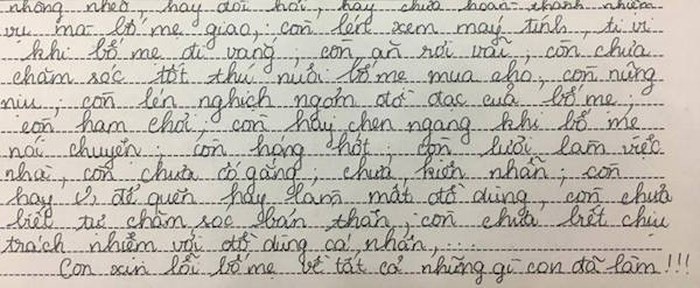 nhõng nhẽo, hay đòi hỏi, hay chưa hoàn thành nhiệm
vụ mà bố mẹ giao,; còn lén xem máy tính, ti vi
khi bố mẹ đi vắng; còn ăn rơi vãi; còn chưa
chăm sóc tốt thú nuôi bố mẹ mua cho; còn nũng
nịu; còn lén nghịch ngợm đồ đạc của bố mẹ;
còn ham chơi; còn hay chen ngang khi bố mẹ
nói chuyện; còn hóng hớt; còn lười làm việc
nhà, còn chưa cố gắng; chưa kiên nhẫn; còn
hay để quên hay làm mất đồ dùng, còn chưa
biết tự chăm sóc bản thân; còn chưa biết chịu
trách nhiệm với đồ dùng cá nhân,....
Con xin lỗi bố mẹ về tất cả những gì con đã làm!!!